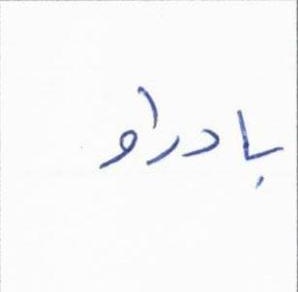 بادراو